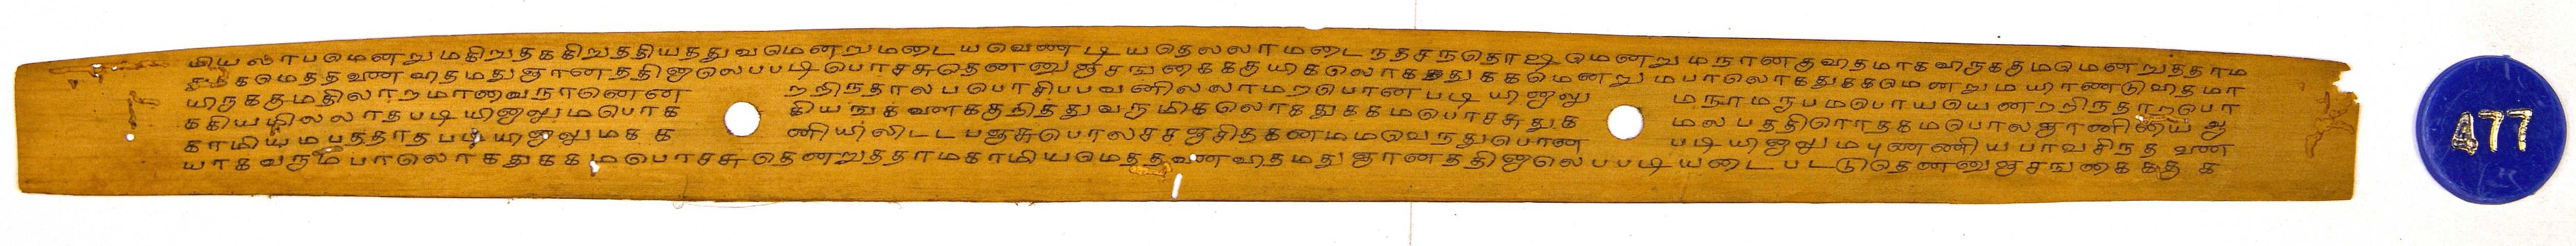 மியலாபமென்றும்கிறுதக்கிறுத்தியத்துவமென்றுமடையவெண்டியதெல்லாமடைந்தசந்தொஷமென்றுமநான்குவிதமாகவிருக்குமமென்றுத்தாம
மெத்தவணவிதமதுஞானத்தினாலெப்படிபொச்சுதென்னுஞ்சஙகைக்குயிகலொகத்துக்கமென்றுமபாலொகதுக்கமென்றுமயாண்டுவிதமா
யிருக்குமதிலாறமாவைநானென் றறிந்தால்பபொசிப்பவனில்லாமறபொனபடியினாலு மநாமருபமபொயயென்றறிந்தாற்பொ
க்கியமில்லாதபடியினாலும்பொக் கியஙகளைக்குறித்துவருமிகலொகத்துக்கமபொச்சுதுக மலபத்திரொதகமபொலஞானியை
காமியமபத்தாதபடியினாலுமக்க ணியிலிட்டபஞ்சுபொல்ச்சஞ்சிதகனமமமவெந்துபொன படியினாலுமபுண்ணியபாவசிந்தவண
யாகவரும்பாலொகதுக்கமபொச்சுதென்றுத்தாமகாமியமெத்தவணவிதமதுஞானத்தினாலெப்படியடைபட்டுதென்னுஞ்சஙகைக்குக
477